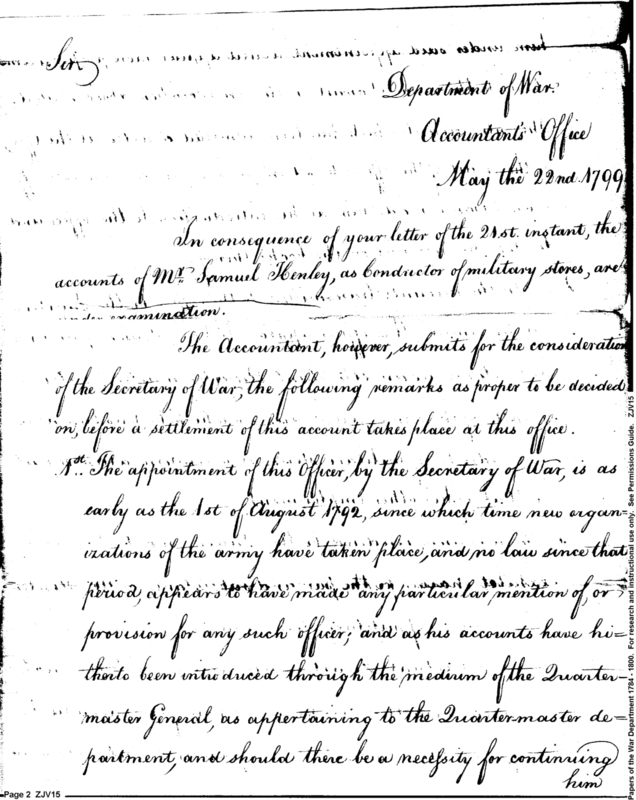 Sir,
Department of War.
Accountants Office
May the 22nd. 1799
In consequence of your letter of the 21.st. instant, the
accounts of Mr. Samuel Henley, as Conductor of military stores, are
under examination.
The Accountant, however, submits for the consideration
of the Secretary of War, the following remarks as proper to be decided
on, before a settlement of this account takes place at this office.
1st. The appointment of this Officer, by the Secretary of War, is as
early as the 1st of August 1792, since which time new organ=
izations of the army have taken place, and no law since that
period, appears to have made any particular mention of, or
provision for any such officer; and as his accounts have hi=
therto been introduced through the medium of the Quarter=
master General, as appertaining to the Quartermaster de=
partment, and should there be a necessity for continuing
him
Page 2 ZJV15
Papers of the War Department 1784 - 1800. For research and instructional use only. See Permissions Guide. ZJV15